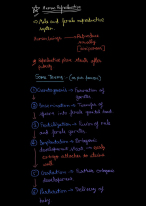 Human Reproduction
→ Male and female reproductive
system.
Human beings → Reproduce
sexually
(viviparous)
→ Reproductive phase starts after
puberty
Some Terms -
① Gametogenesis → Formation of
gametes
② Insemination → Transfer of
sperm into female genital tract.
③ Fertilisation → Fusion of male
and female gametes.
④ Implantation → Embryonic
development start →
attaches to uterine
wall
⑤ Gestation → Further embryonic
development
⑥ Parturition → Delivery of
baby